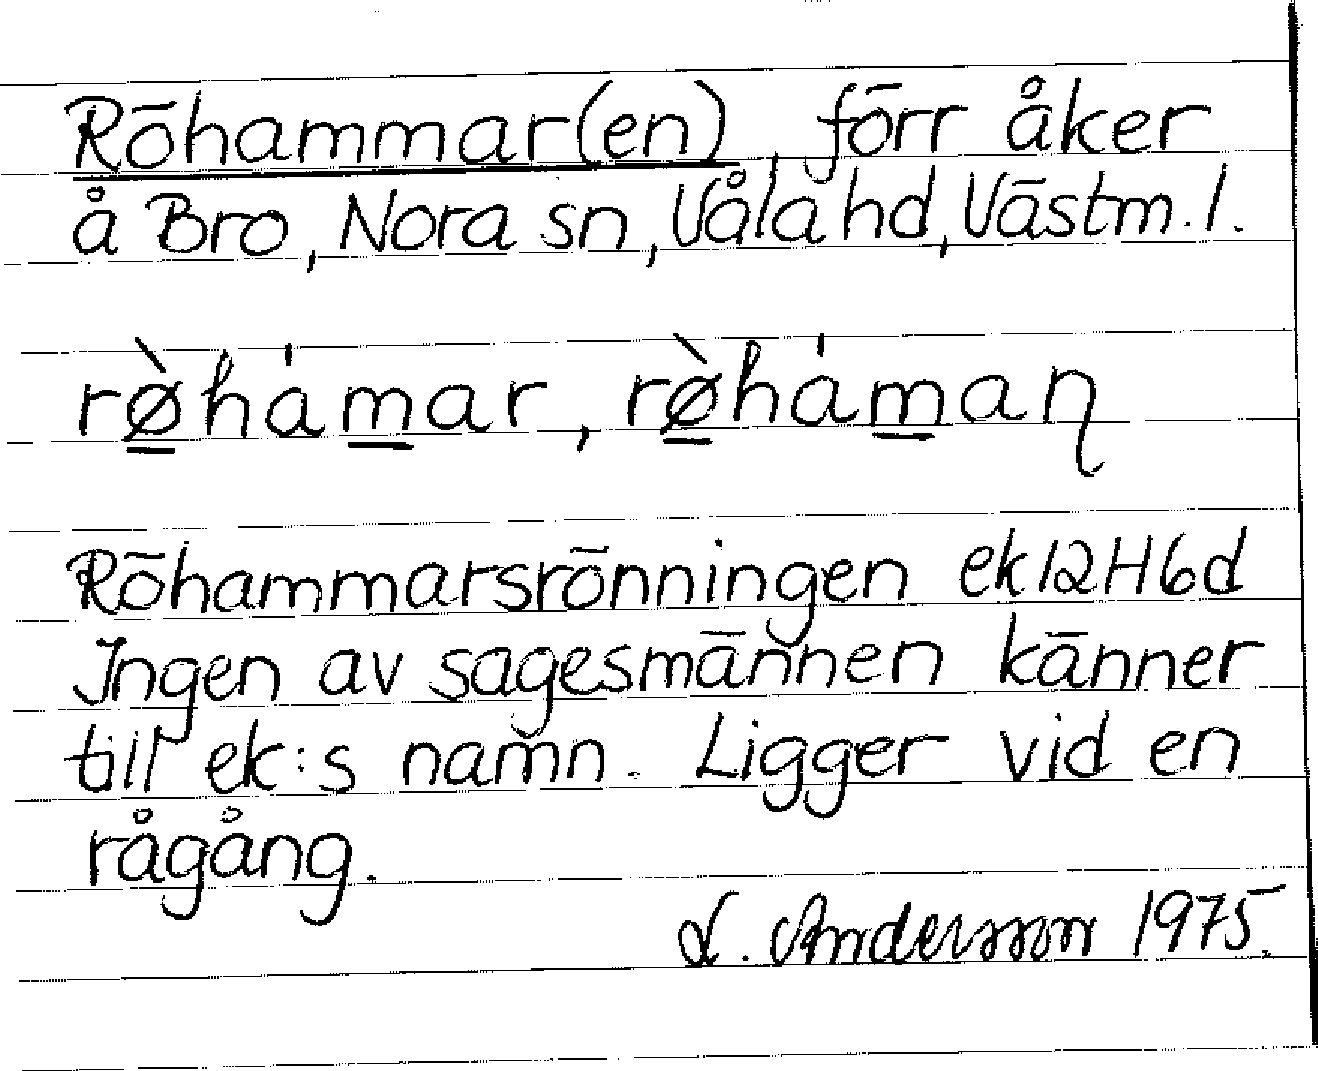 Röhammar(en), förr åker
å Bro, Nora sn, Våla hd, Västm. l.
rø̱̀há́m̱ar, rø̱̀há́m̱aꞃ
Röhammarsrönningen ek 12H6d
Ingen av sagesmännen känner
till ek:s namn. Ligger vid en
rågång.
L. Andersson 1975.